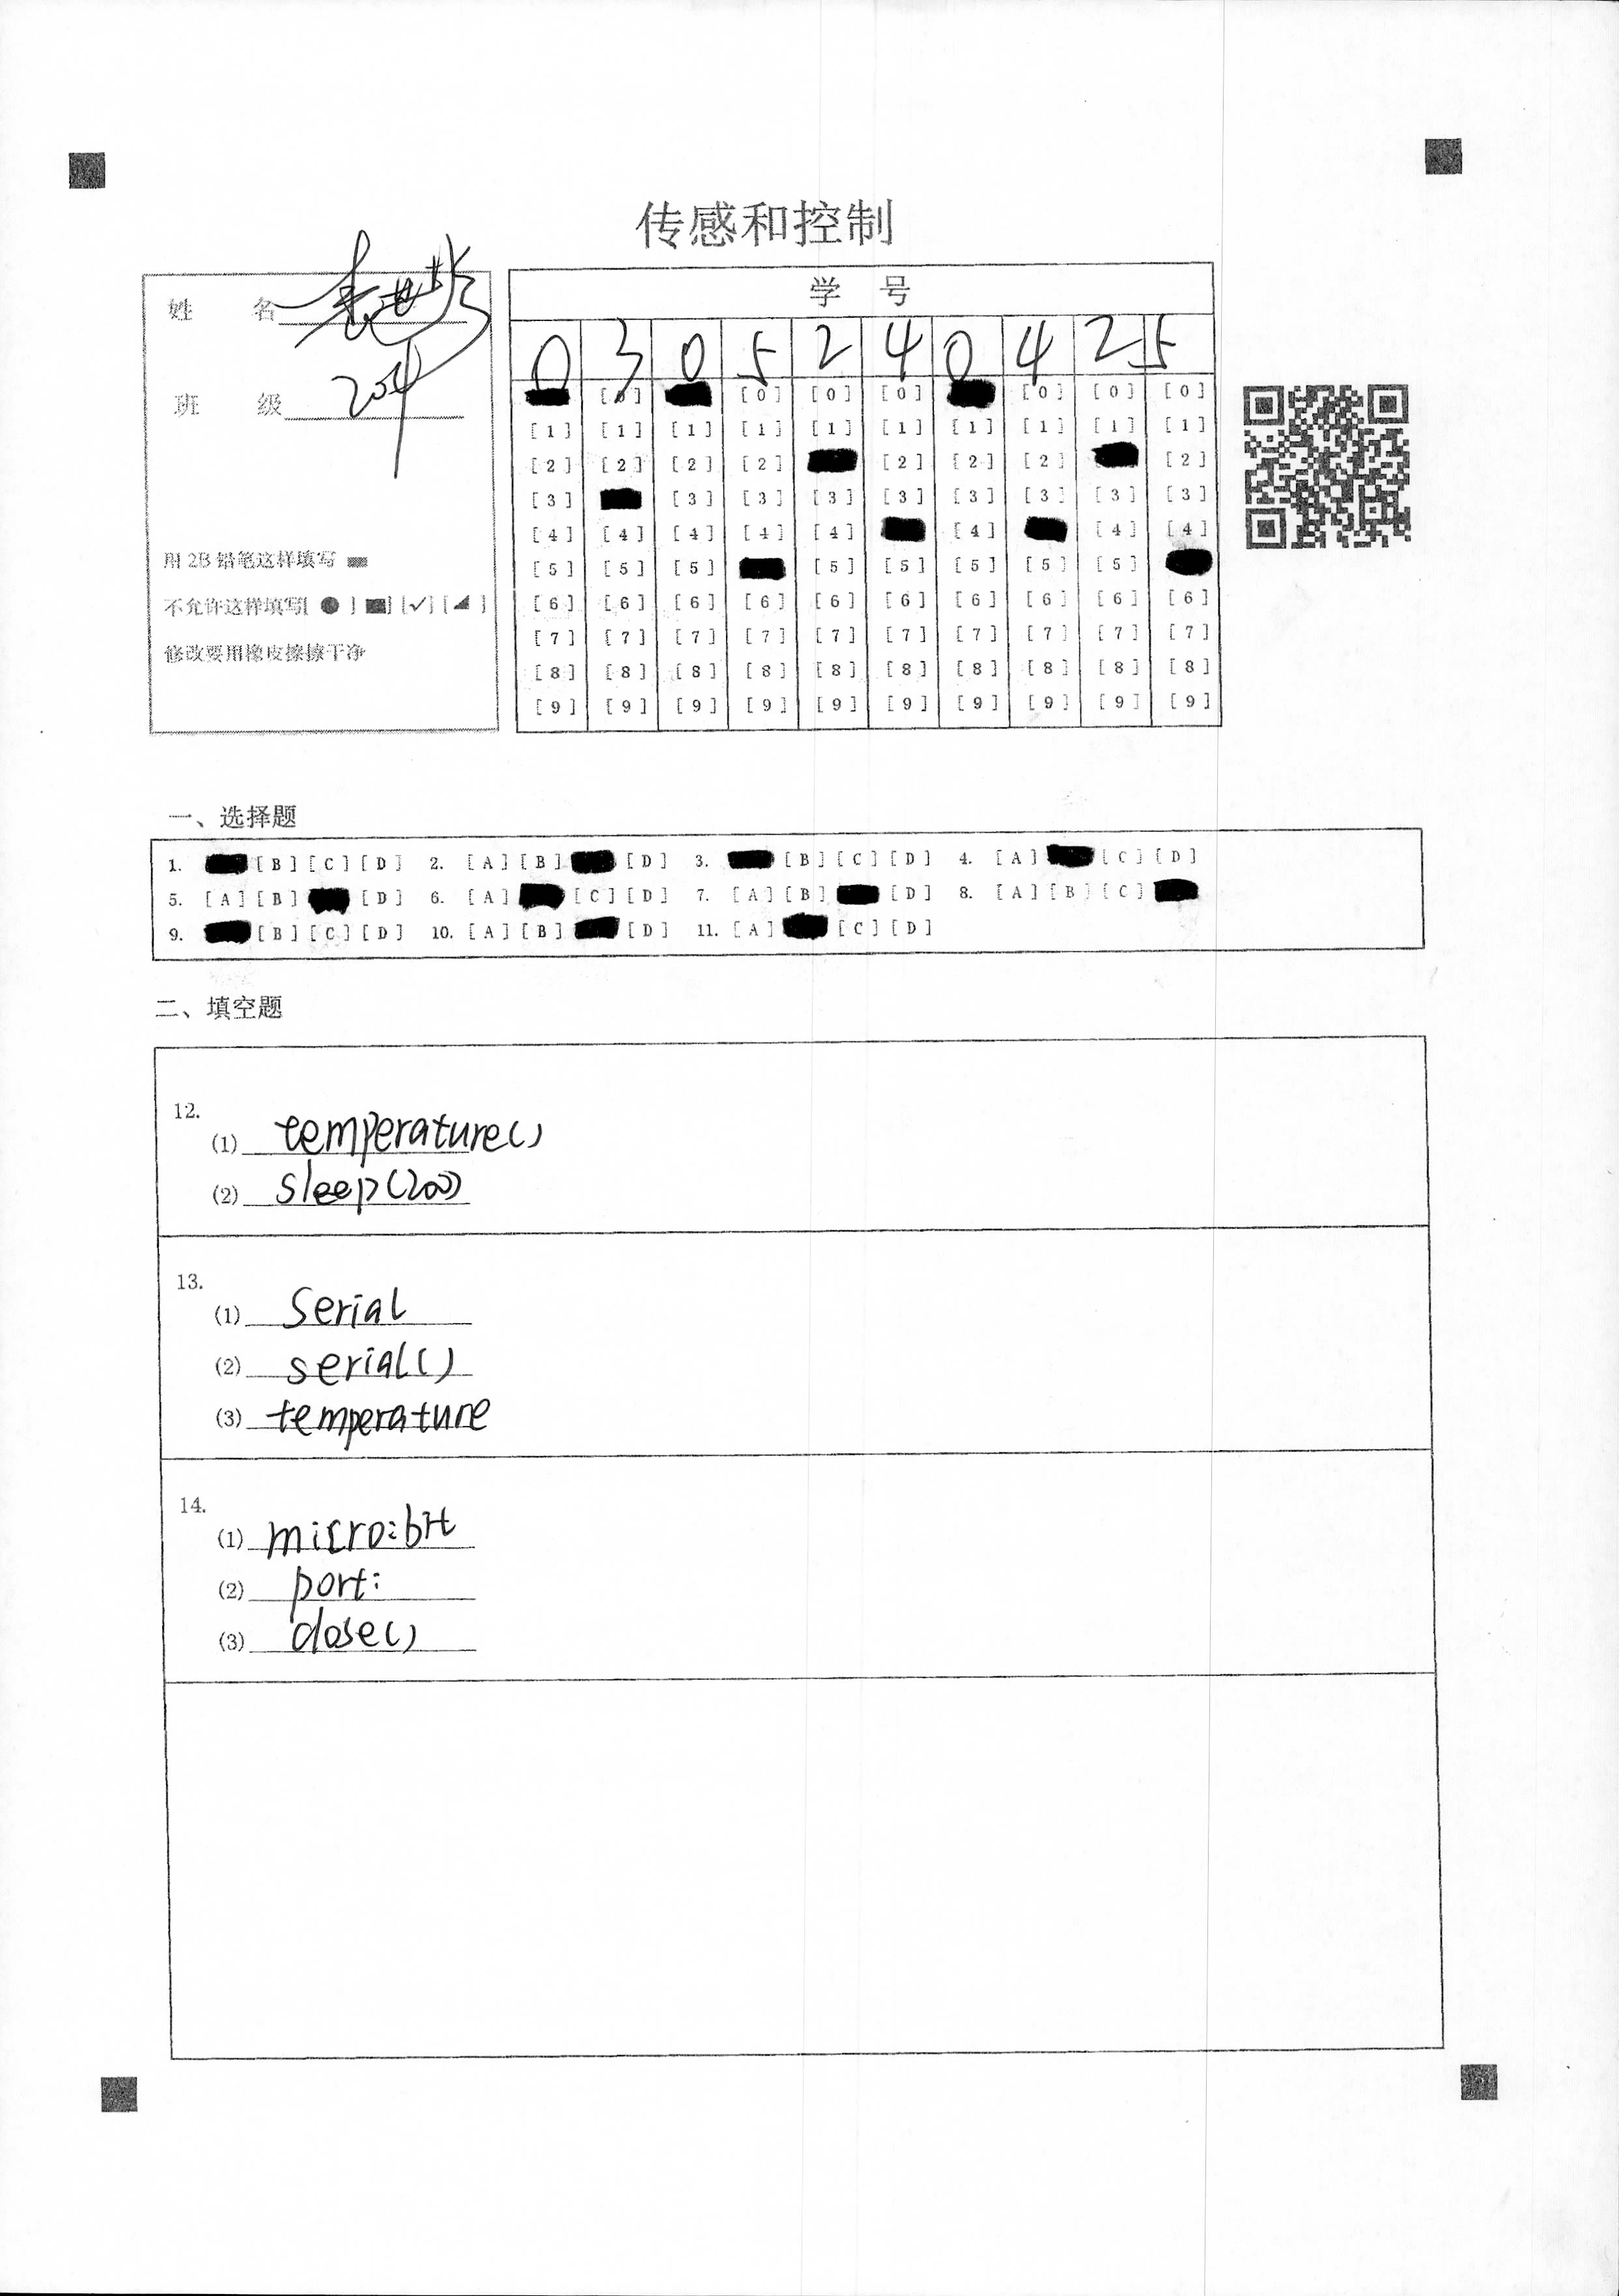 传感和控制
姓 名
班 级 204
用 2B 铅笔这样填写
不允许这样填写[ ● ] [■] [✓] [◢ ]
修改要用橡皮擦擦干净
学 号
0 3 0 5 2 4 0 4 2 5
[0] [0] [0] [0] [0] [0]
[1] [1] [1] [1] [1] [1] [1] [1] [1] [1]
[2] [2] [2] [2] [2] [2] [2] [2]
[3] [3] [3] [3] [3] [3] [3] [3] [3]
[4] [4] [4] [4] [4] [4] [4] [4]
[5] [5] [5] [5] [5] [5] [5] [5]
[6] [6] [6] [6] [6] [6] [6] [6] [6] [6]
[7] [7] [7] [7] [7] [7] [7] [7] [7] [7]
[8] [8] [8] [8] [8] [8] [8] [8] [8] [8]
[9] [9] [9] [9] [9] [9] [9] [9] [9] [9]
一、选择题
1. [B] [C] [D] 2. [A] [B] [D] 3. [B] [C] [D] 4. [A] [C] [D]
5. [A] [B] [D] 6. [A] [C] [D] 7. [A] [B] [D] 8. [A] [B] [C]
9. [B] [C] [D] 10. [A] [B] [D] 11. [A] [C] [D]
二、填空题
12.
(1) temperature()
(2) sleep(200)
13.
(1) Serial
(2) serial()
(3) temperature
14.
(1) micro:bit
(2) port:
(3) close()